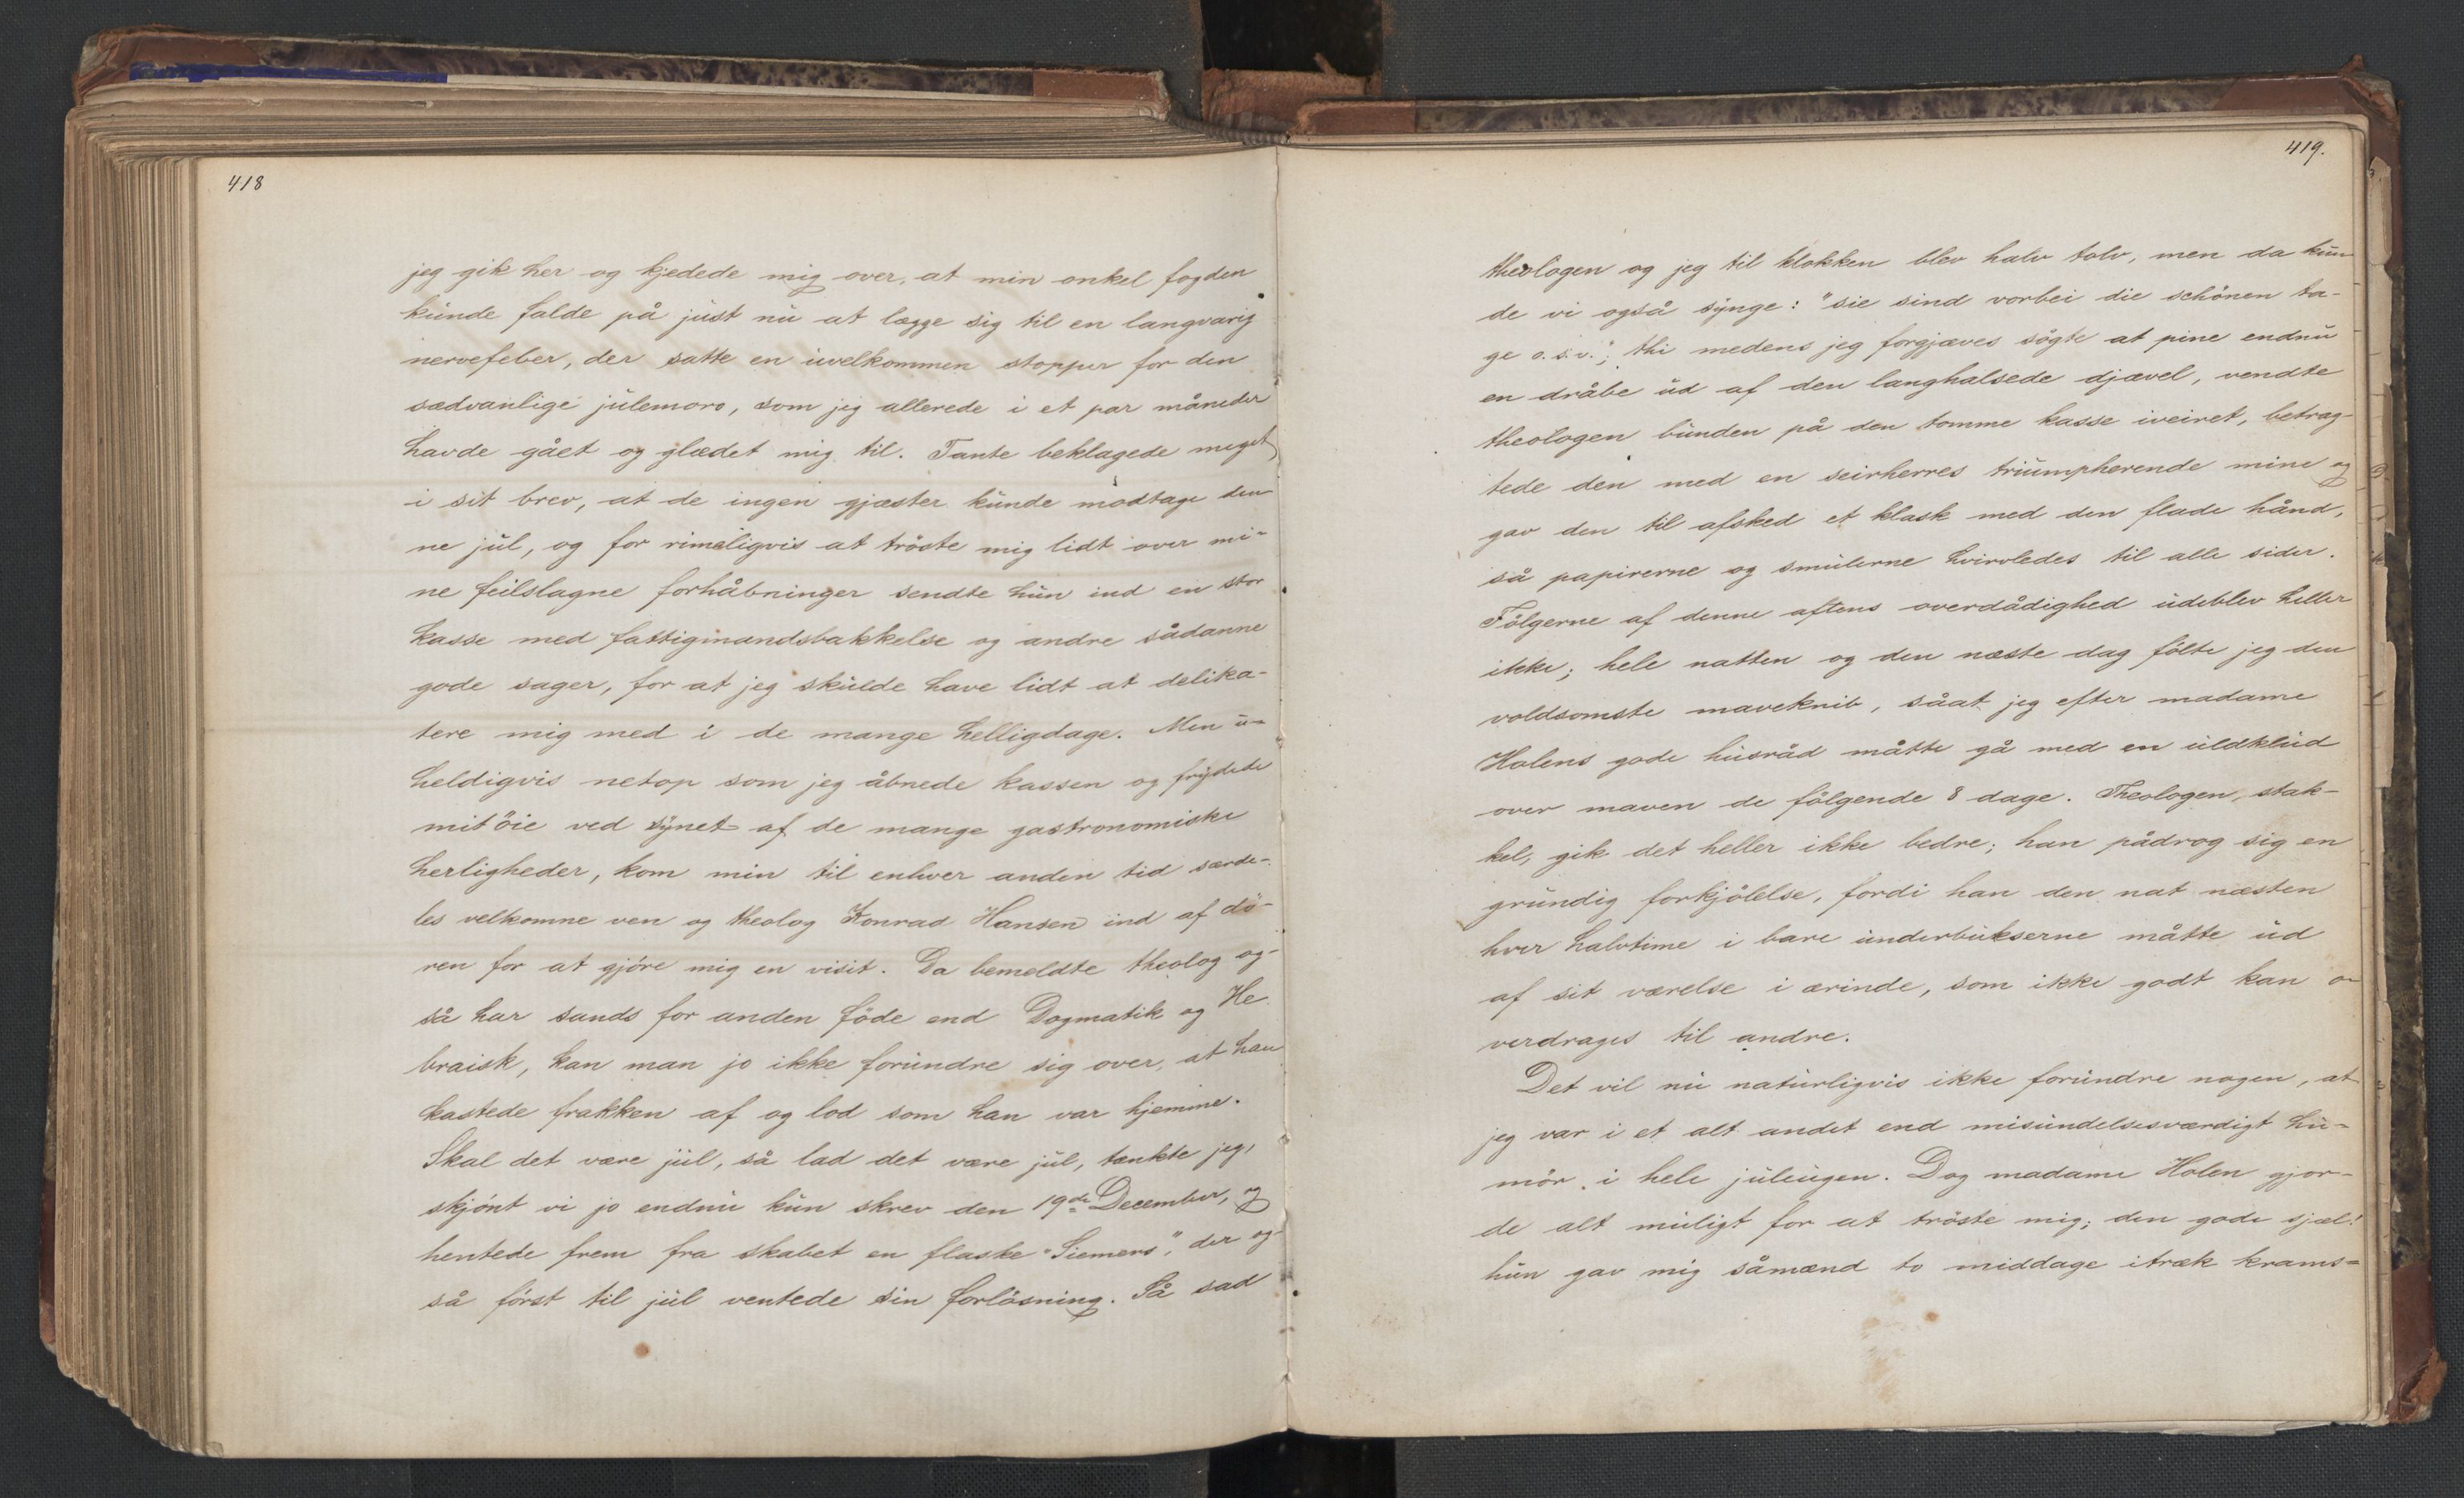 418
jeg gik her og kjedede mig over, at min onkel fogden
kunde falde på just nu at lægge sig til en langvarig
nervefeber, der satte en uvelkommen stopper for den
sædvanlige julemoro, som jeg allerede i et par måneder
havde gået og glædet mig til. Tante beklagede meget
i sit brev, at de ingen gjæster kunde modtage den-
ne jul, og for rimeligvis at tröste mig lidt over mi-
ne feilslagne forhåbninger sendte hun ind en stor
kasse med fattigmandsbakkelse og andre sådanne
gode sager, for at jeg skulde have lidt at delika-
tere mig med i de mange helligdage. Men u-
heldigvis netop som jeg åbnede kassen og frydede
mit öie ved synet af de mange gastronomiske
herligheder, kom min til enhver anden tid særde-
les velkomne ven og theolog Konrad Hansen ind af dö-
ren for at gjöre mig en visit. Da bemeldte theolog og-
så har sands for anden föde end Dogmatik og He-
braisk, kan man jo ikke forundre sig over, at han
kastede frakken af og lod som han var hjemme.
Skal det være jul, så lad det være jul, tænkte jeg,
skjönt vi jo endnu kun skrev den 19de December, og
hentede frem fra skabet en flaske "Siemers", der og-
så först til jul ventede sin forlösning. Så sad
419.
theologen og jeg til klokken blev halv tolv, men da kun-
de vi også synge: "sie sind vorbei die schönen ta-
ge o.s.v."; thi medens jeg forgjæves sögte at pine endnu
en dråbe ud af den langhalsede djævel, vendte
theologen bunden på den tomme kasse iveiret, betrag-
tede den med en seirherres triumpherende mine og
gav den til afsked et klask med den flade hånd,
så papirerne og smulerne hvirvledes til alle sider.
Fölgerne af denne aftens overdådighed udeblev heller
ikke; hele natten og den næste dag fölte jeg den
voldsomste maveknib, såat jeg efter madame
Holens gode husråd måtte gå med en uldklud
over maven de fölgende 8 dage. Theologen, stak-
kel, gik det heller ikke bedre; han pådrog sig en
grundig forkjölelse, fordi han den nat næsten
hver halvtime i bare underbukserne måtte ud
af sit værelse i ærinde, som ikke godt kan o-
verdrages til andre.
Det vil nu naturligvis ikke forundre nogen, at
jeg var i et alt andet end misundelsesværdigt hu-
mör i hele juleugen. Dog madame Holen gjor-
de alt muligt for at tröste mig; den gode sjæl!
hun gav mig såmænd to middage itræk krams-